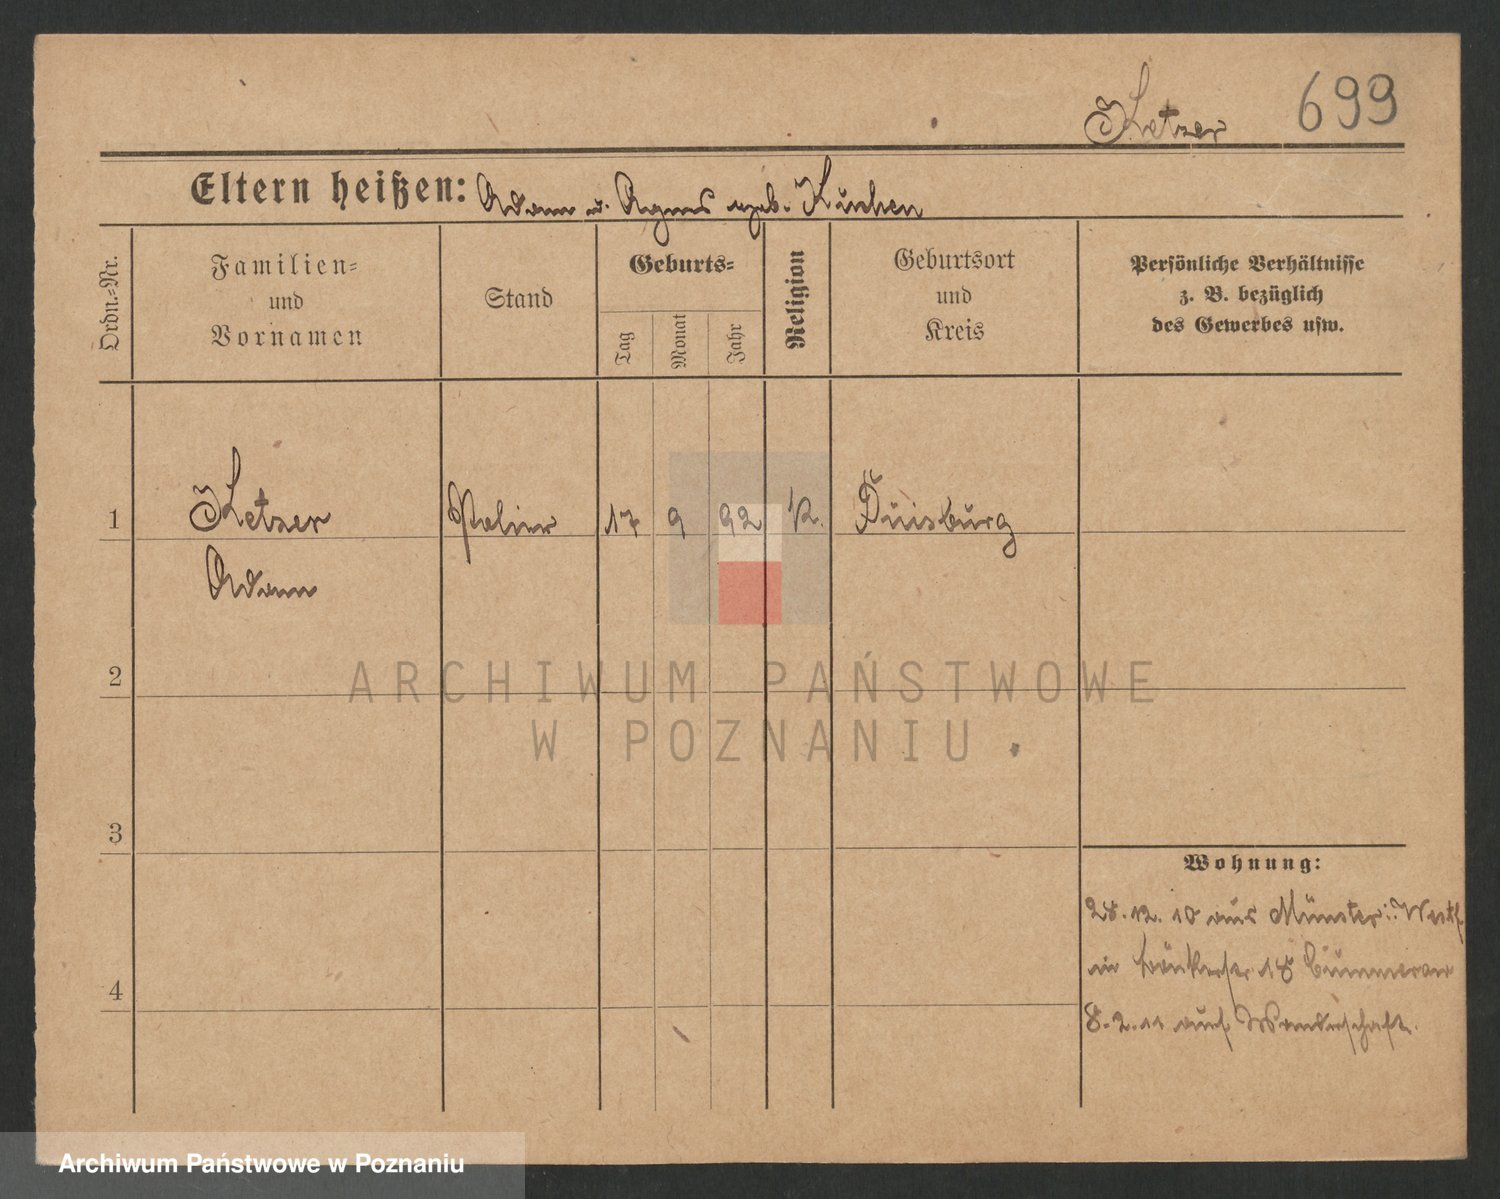 Ketzer 699
Eltern heißen: Adam u. Agnes geb. Kuchen
Ordn.-Nr.
Familien-
und
Vornamen
Stand
Geburts-
Tag
Monat
Jahr
Religion
Geburtsort
und
Kreis
Persönliche Verhältnisse
z. B. bezüglich
des Gewerbes usw.
1 Ketzer Polier 17 9 92 K. Duisburg
Adam
2
ARCHIWUM PAŃSTWOWE
W POZNANIU
3
Wohnung:
28.12.10 aus Münster i. Westf.
18
4
8.2.11 auf Wanderschaft.
Archiwum Państwowe w Poznaniu